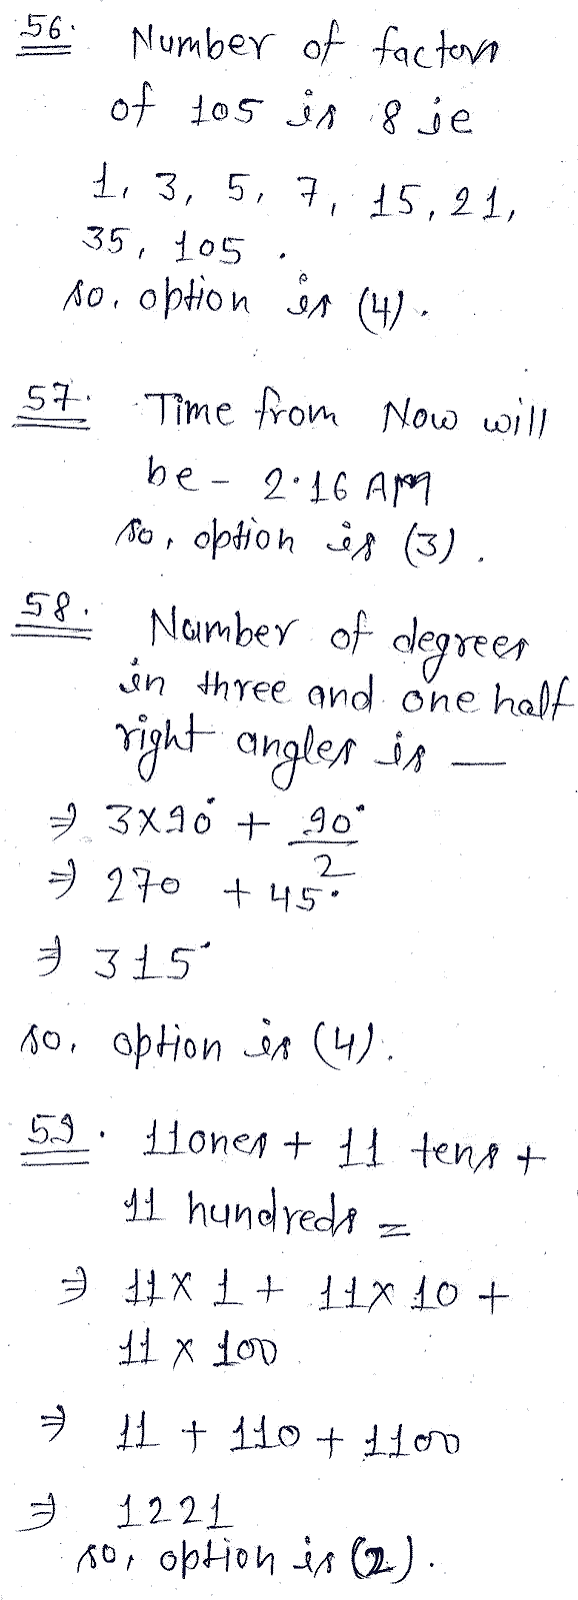 56. Number of factors
of 105 is 8 ie
1, 3, 5, 7, 15, 21,
35, 105.
so, option is (4).
57. Time from Now will
be - 2.16 AM
so, option is (3).
58. Number of degrees
in three and one half
right angles is —
⇒ 3×90° + 90°/2
⇒ 270 + 45°
⇒ 315°
so, option is (4).
59. 11ones + 11 tens +
11 hundreds =
⇒ 11×1 + 11×10 +
11 × 100
⇒ 11 + 110 + 1100
⇒ 1221
so, option is (2).